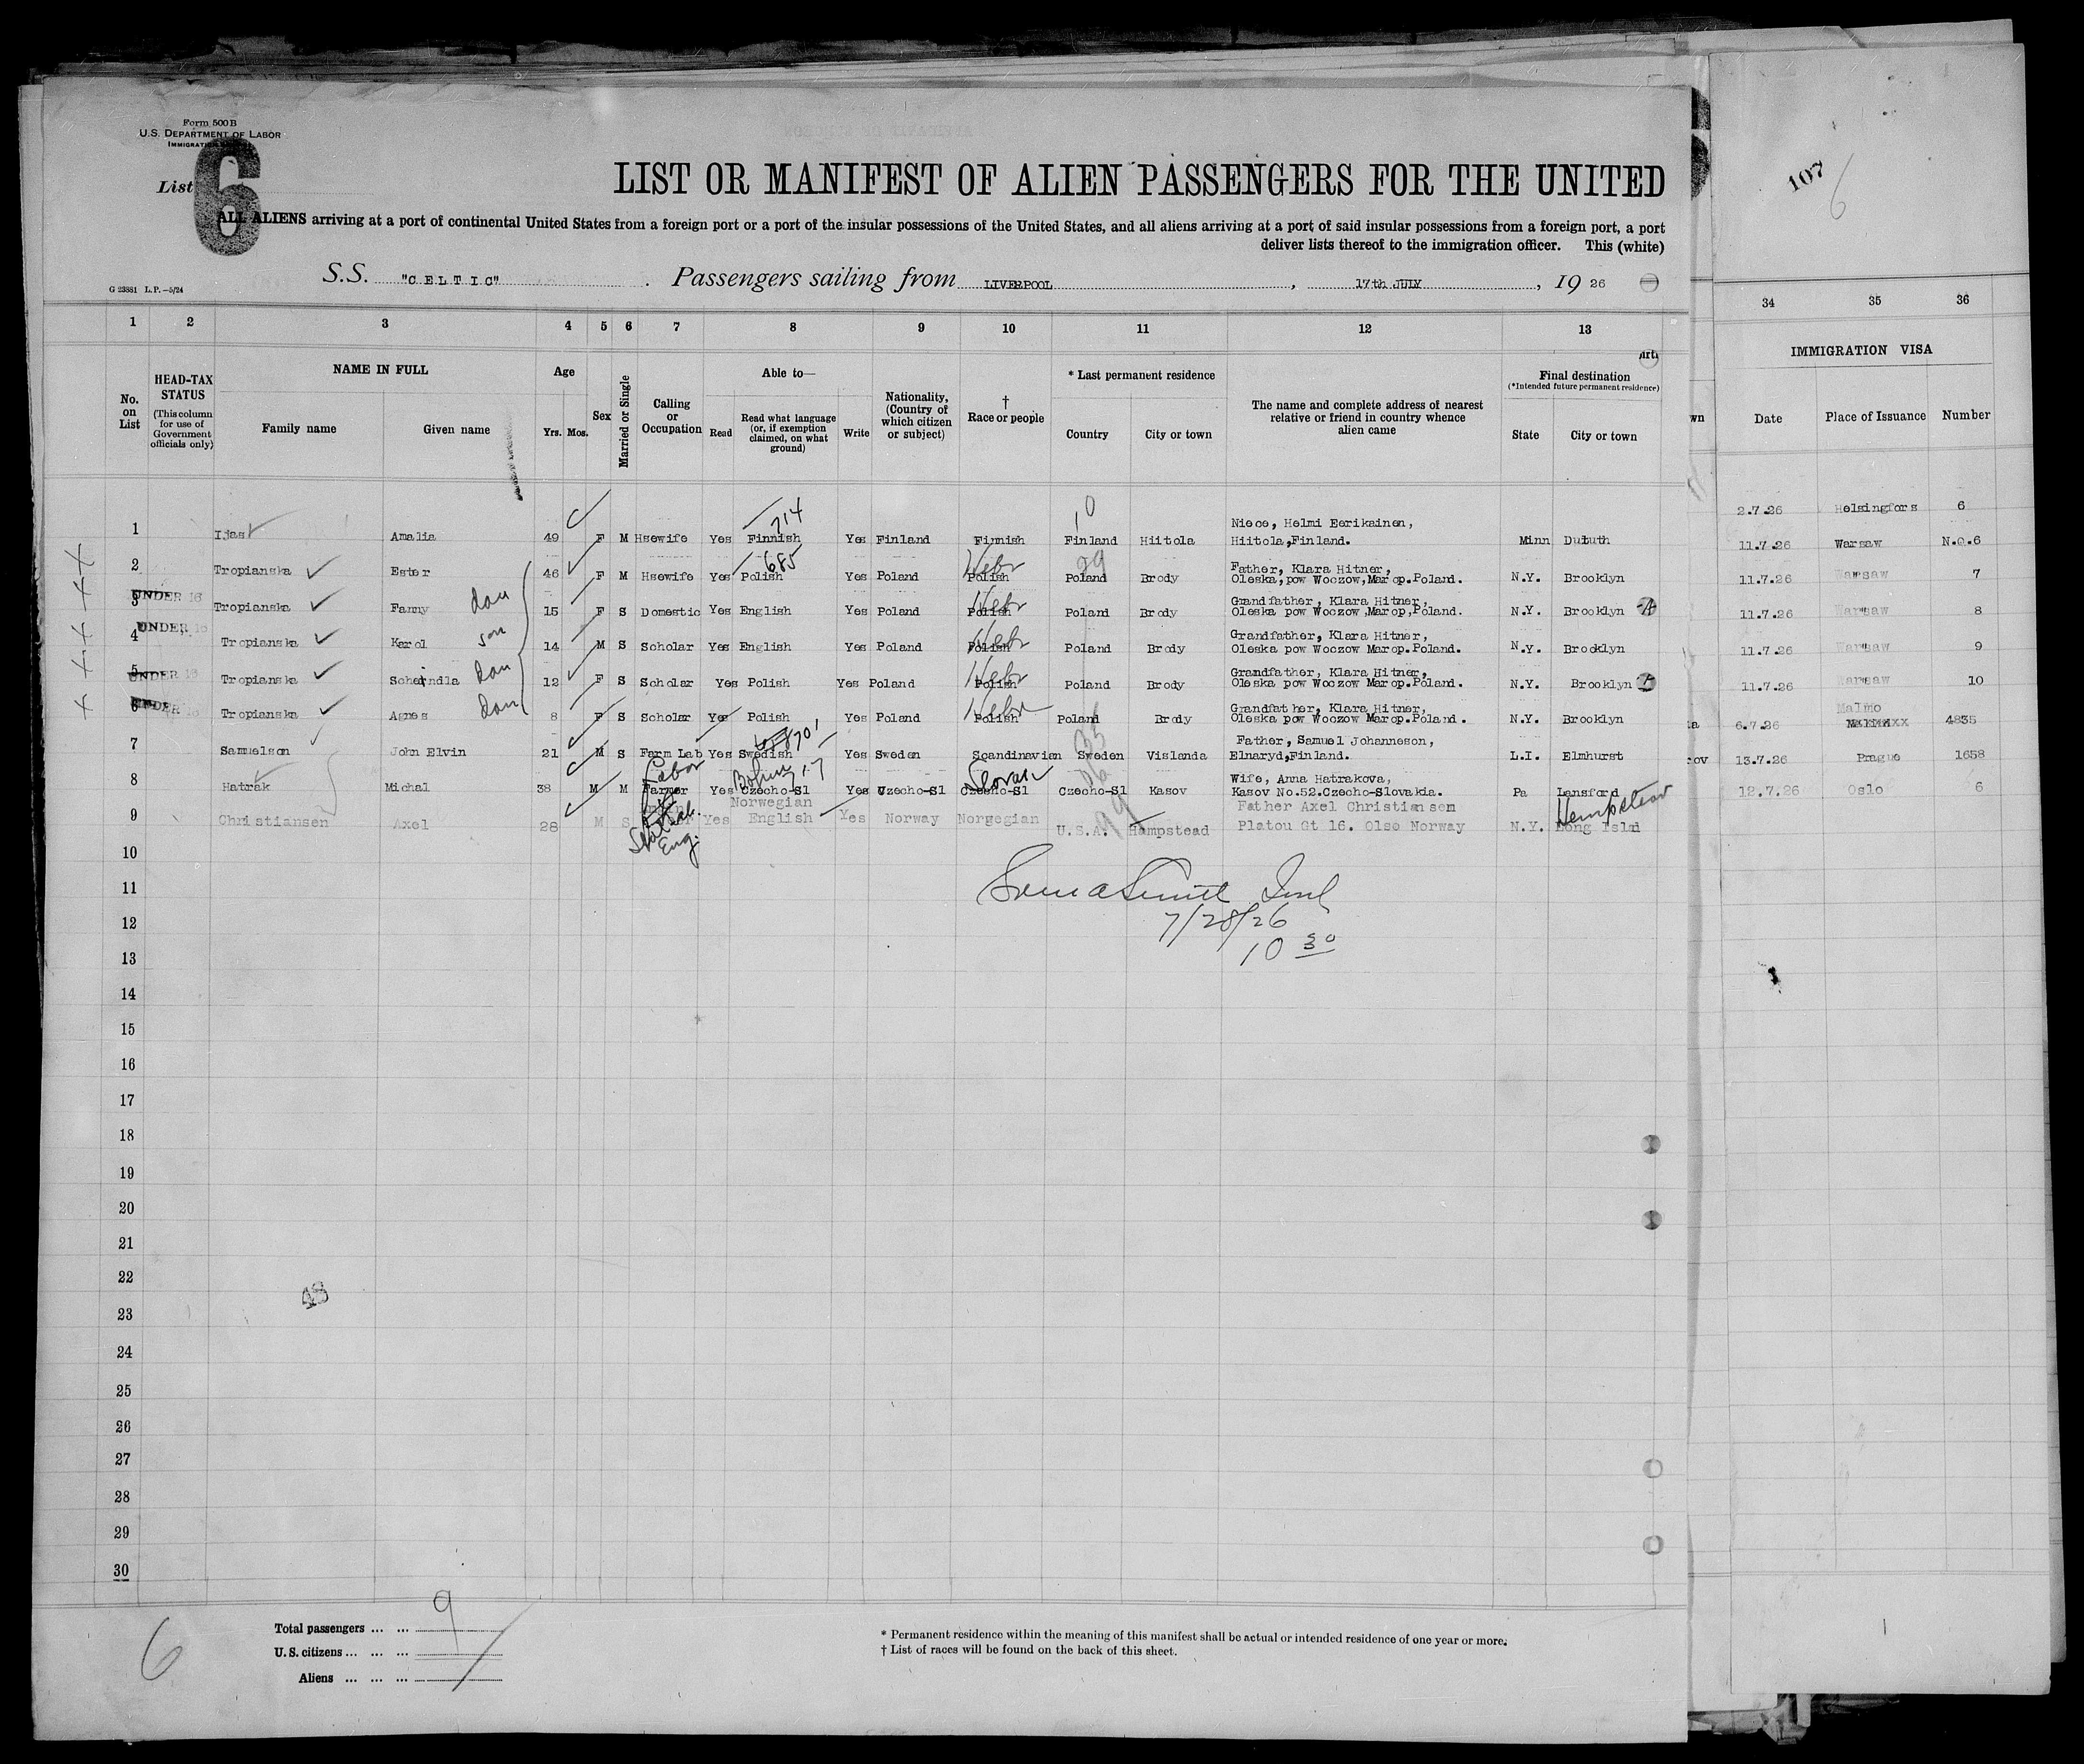 Form 500B
U.S. DEPARTMENT OF LABOR
List 6
LIST OR MANIFEST OF ALIEN PASSENGERS FOR THE UNITED
ALL ALIENS arriving at a port of continental United States from a foreign port or a port of the insular possessions of the United States, and all aliens arriving at a port of said insular possessions from a foreign port, a port
deliver lists thereof to the immigration officer. This (white)
S.S. "CELTIC" . Passengers sailing from LIVERPOOL , 17th JULY , 19 26
G 23881 L.P.—5/24
107
6
1 2 3 4 5 6 7 8 9 10 11 12 13 34 35 36
No. on List
HEAD-TAX STATUS (This column for use of Government officials only)
NAME IN FULL
Family name Given name
Age
Yrs. Mos.
Sex
Married or Single
Calling or Occupation
Able to—
Read Read what language (or, if exemption claimed, on what ground) Write
Nationality, (Country of which citizen or subject)
† Race or people
* Last permanent residence
Country City or town
The name and complete address of nearest relative or friend in country whence alien came
Final destination
(*Intended future permanent residence)
State City or town
IMMIGRATION VISA
Date Place of Issuance Number
214 10
1 Ijas Amalia 49 F M Hsewife Yes Finnish Yes Finland Finnish Finland Hiitola Niece, Helmi Eerikainen, Hiitola,Finland. Minn Duluth 2.7.26 Helsingfors 6
685 Hebr 99
2 Tropianska Ester 46 F M Hsewife Yes Polish Yes Poland Polish Poland Brody Father, Klara Hitner, Oleska,pow Woczow,Marop.Poland. N.Y. Brooklyn 11.7.26 Warsaw N.Q.6
UNDER 16 dau Hebr
3 Tropianska Fanny 15 F S Domestic Yes English Yes Poland Polish Poland Brody Grandfather, Klara Hitner, Oleska pow Woczow,Marop,Poland. N.Y. Brooklyn 11.7.26 Warsaw 7
UNDER 16 son Hebr
4 Tropianska Karol 14 M S Scholar Yes English Yes Poland Polish Poland Brody Grandfather, Klara Hitner, Oleska pow Woczow Marop.Poland. N.Y. Brooklyn 11.7.26 Warsaw 8
UNDER 16 dau Hebr
5 Tropianska Scheindla 12 F S Scholar Yes Polish Yes Poland Polish Poland Brody Grandfather, Klara Hitner, Oleska pow Woczow Marop.Poland. N.Y. Brooklyn 11.7.26 Warsaw 9
UNDER 16 dau Hebr
6 Tropianska Agnes 8 F S Scholar Yes Polish Yes Poland Polish Poland Brody Grandfather, Klara Hitner, Oleska pow Woczow Marop.Poland. N.Y. Brooklyn 11.7.26 Warsaw 10
7 Samuelson John Elvin 21 M S Farm Lab Yes Swedish Yes Sweden Scandinavian Sweden Vislanda Father, Samuel Johanneson, Elnaryd,Finland. L.I. Elmhurst 6.7.26 Malmo 4835
Labor Slovak
8 Hatrak Michal 38 M M Farmer Yes Czecho-Sl Yes Czecho-Sl Czecho-Sl Czecho-Sl Kasov Wife, Anna Hatrakova, Kasov No.52.Czecho-Slovakia. Pa Lansford 13.7.26 Prague 1658
Hempstead
9 Christiansen Axel 28 M S Eng. Yes Norwegian English Yes Norway Norgegian U.S.A. Hampstead Father Axel Christiansen Platou Gt 16. Olso Norway N.Y. Long Islnd 12.7.26 Oslo 6
10
11
7/28/26
12
10 30
13
14
15
16
17
18
19
20
21
22
23
24
25
26
27
28
29
30
6
Total passengers ... ... 9
U.S. citizens ... ... ...
Aliens ... ... ...
* Permanent residence within the meaning of this manifest shall be actual or intended residence of one year or more.
† List of races will be found on the back of this sheet.